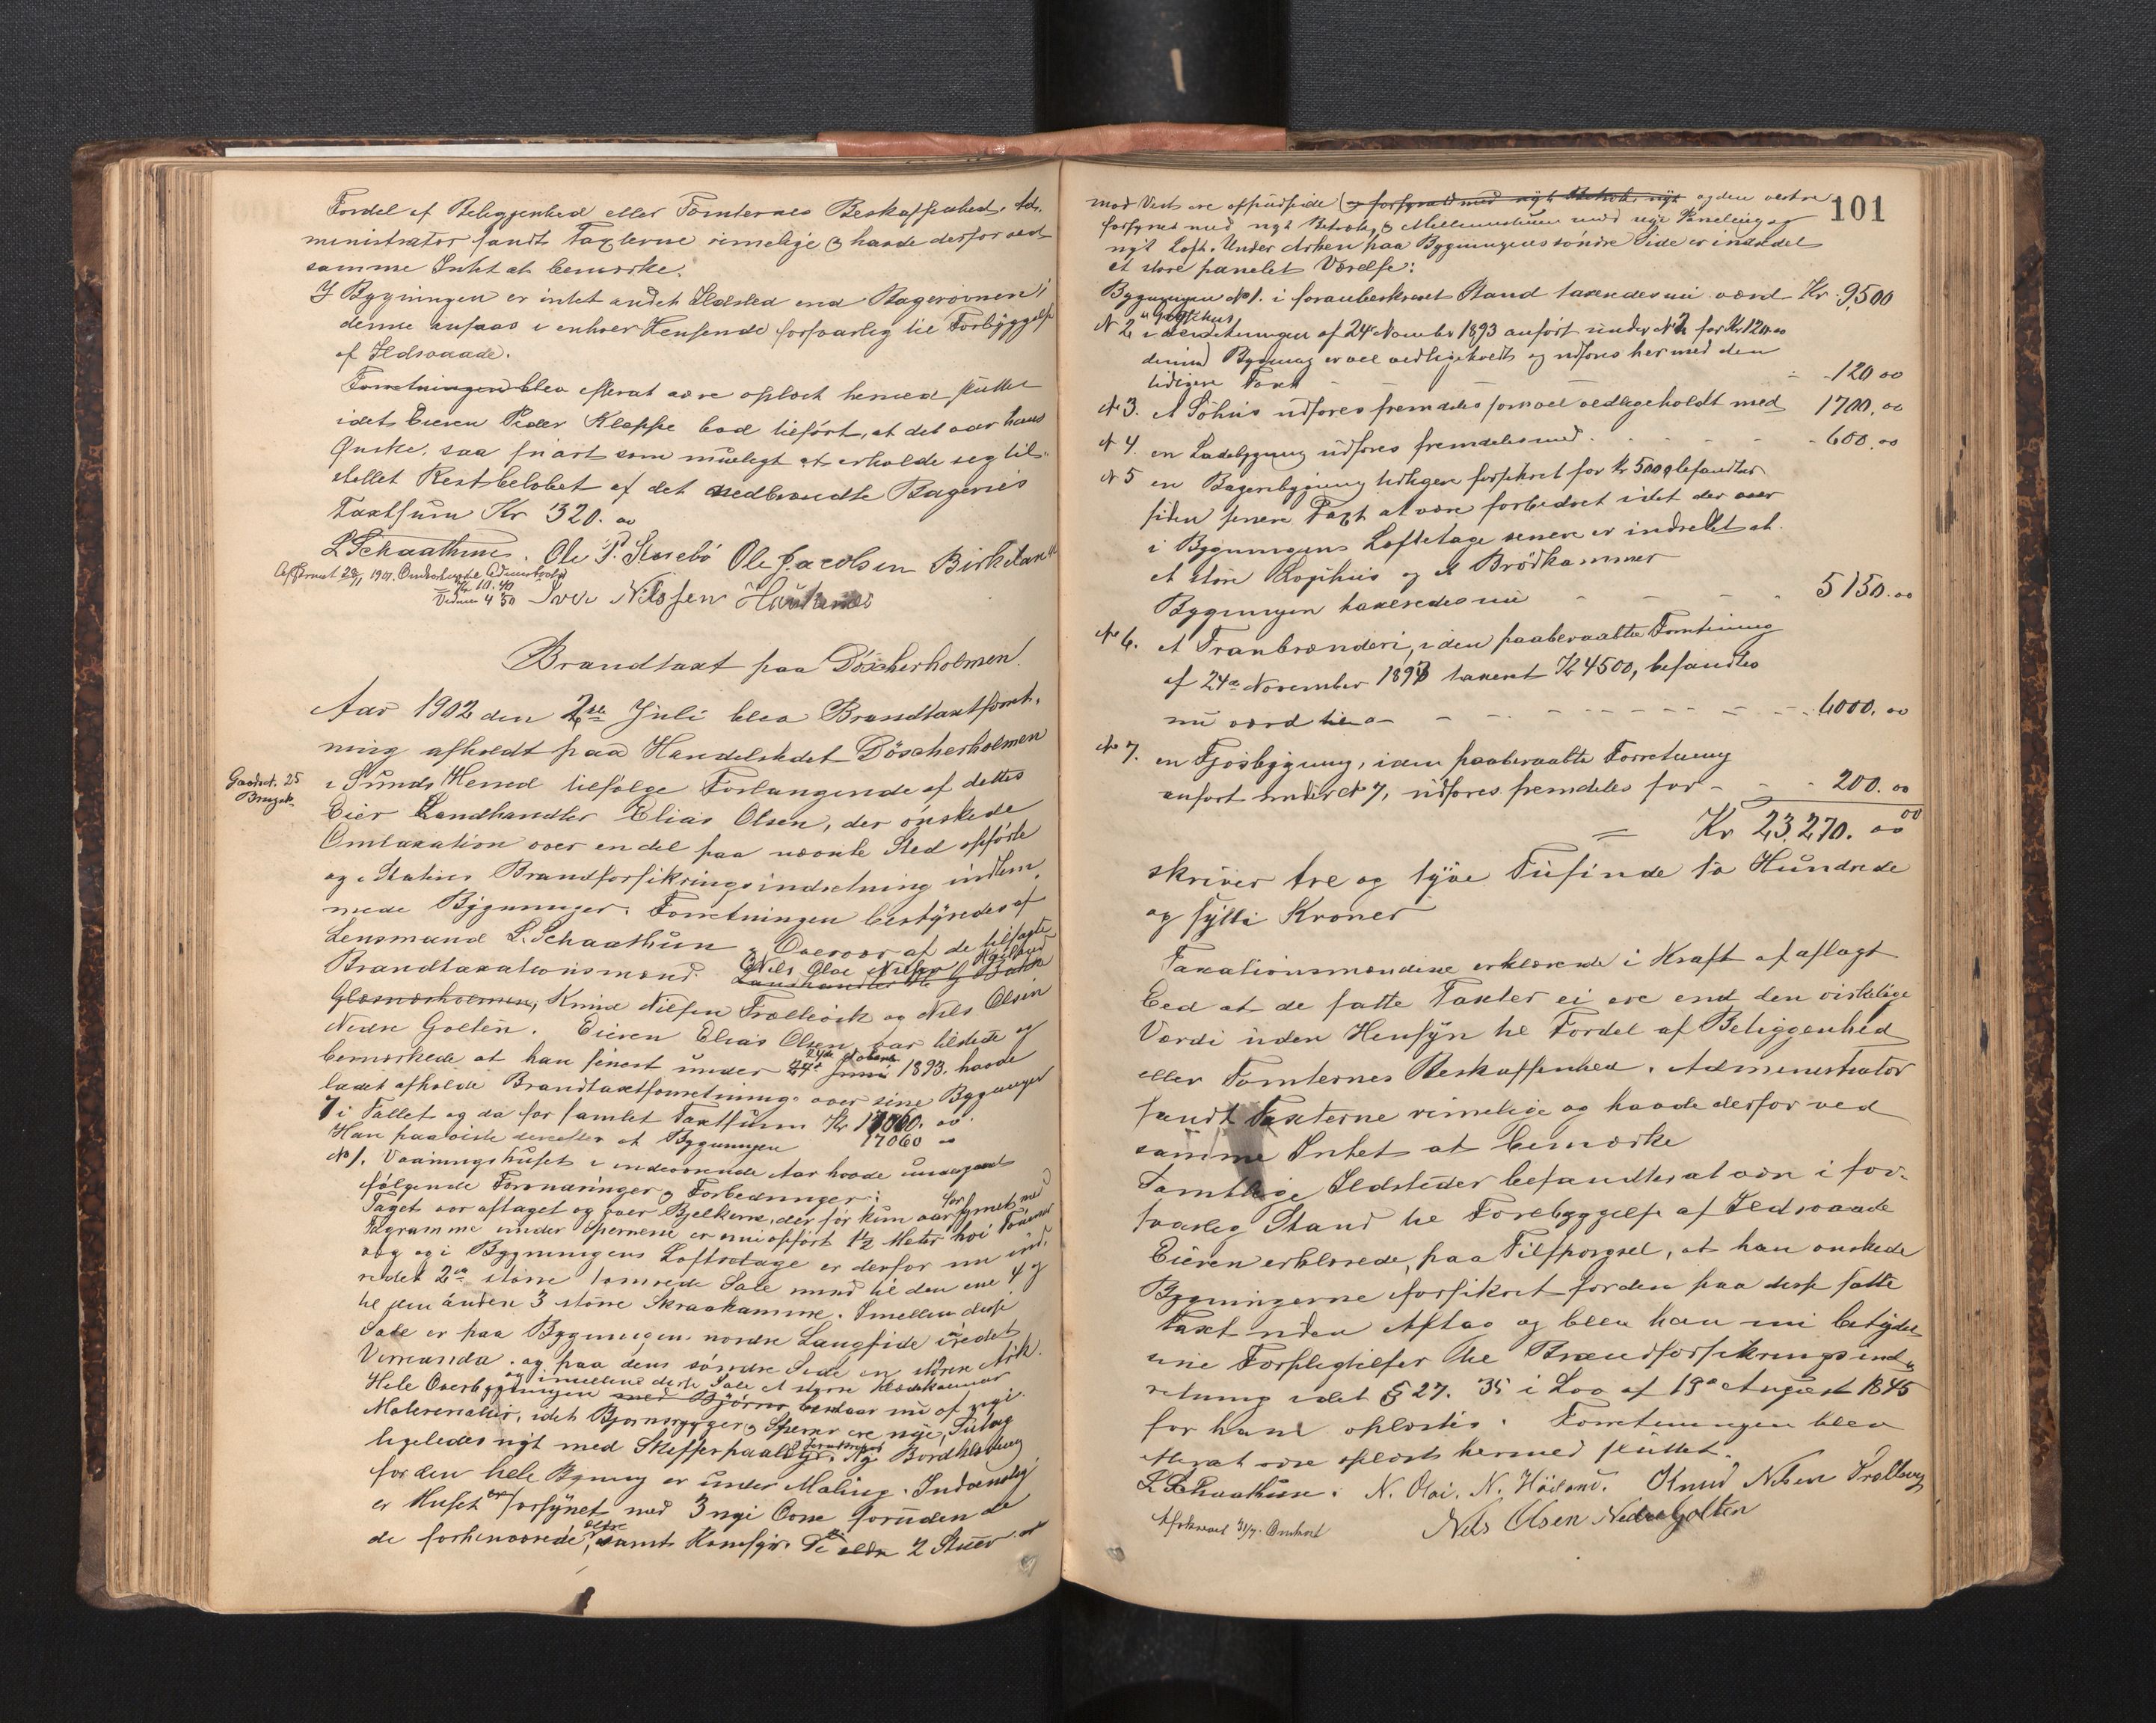 Fordel af Beliggenhed eller Tomternes Beskaffenhed. Ad-
ministrator fandt Taxterne rimelige & havde derfor ved
samme Intet at bemærke.
I Bygningen er intet andet Ildsted end Bagerovnen;
denne ansaas i enhver Henseende forsvarlig til Forbyggelse
af Ildsvaade.
Forretningen blev efterat være oplæst hermed sluttet
idet Eieren Peder Kleppe bad tilført, at det var hans
Ønske, saa snart som mueligt at erholde seg til-
stellet Restbeløbet af det nedbrændte Bageries
Taxtsum Kr 320. 00
L Schaathun. Ole P. Storebö Ole Jacobsen Birkeland
1901
10.40
4 50 Iver Nilssen
Brandtaxt paa Döscherholmen.
Aar 1902 den 2den Juli blev Brandtaxtforret-
ning afholdt paa Handelstedet Döscherholmen
Gaardsn. 25
Brugsn.
i Sunds Herred tilfølge Forlangende af dettes
Eier Landhandler Elias Olsen, der ønskede
Omtaxation over en del paa nævnte Sted opførte
og i Statens Brandforsikringsindretning indlem-
mede Bygninger. Forretningen bestyredes af
Lensmand L. Schaathun og Overvær af de tilsagte
Brandtaxationsmænd: Nils Olai Nilsen Høiland
Landhandler
Glæsnesholmen, Knud Nilsen Trællevik og Nils Olsen
Nedre Golten. Eieren Elias Olsen var tilstede og
bemærkede at han senest under 24de Novbr 1893. havde
ladet afholde Brandtaxtforretning over sine Bygninger
7 i Tallet og da for samlet Taxtsum Kr 17060. 00.
17060 00
Han paaviste derefter at Bygningen
No 1. Vaaningshuset i indeværende Aar havde undergaaet
følgende Forandringer & Forbedringer:
Taget var aftaget og over Bjelkerne, der før kun var forsynet med
Tagramme under Sperrerne er nu opført 1½ Meter høi Tømmer
væg og i Bygningens Loftsetage er derfor nu ind-
redet 2de større tømrede Sale med til den ene 4 og
til den anden 3 større Skraakamre. Imellem disse
Sale er paa Bygningens nordre Langside indredet
Verranda. og paa dens søndre Side en større Ark.
og imellem disse Sale et større Klædekammer
Hele Overbygningen med Bjørner bestaar nu af nye
Materialier, idet Bjørnerygger & Sperrer ere nye, Tutag
ligeledes nyt med Skifferpaalæg. Ny Bordklædning
for den hele Bygning er under Maling. Indvendig
er Huset forsynet med 3 nye Ovne foruden de
de forhenværende, samt Komfyr. De 2 Stuer
101
mod Vest ere oppudsede (og forsynet med nyt Betræk nyt og den vestre
forsynet med nyt Betræk, & Mellemstuen med nye Paneling og
nyt Loft. Under Arken paa Bygningens søndre Side er indredet
et stort panelet Værelse:
Bygningen No 1. i foranbeskrevet Stand taxeredes nu værd Kr. 9,500
N 2 i Forretningen af 24de Novembr 1893 anført under N 2 for Kr 120.00
denne Bygning er vel vedligeholdt og udføres her med den
tidigere Taxt - - 120 00
N 3. et Söhus udføres fremdeles som vel vedligeholdt med 1700. 00
N 4. en Ladebygning udføres fremdeles med. - - 600. 00
N 5 en Bageribygning tidligere forsikret for Kr 5000 befandtes
siden senere Taxt at være forbedret idet der
i Bygningens Loftetage senere er indredet et
et større Logihus og et Brödkammer
Bygningen taxeredes nu - - 5150. 00
No 6. et Tranbrænderi, i den paaberaabte Forretning
af 24de November 1893 taxert Kr 4500, befandtes
nu værd - - 6000. 00
No 7. en Fjosbygning, i den paaberaabte Forretning
anført under N 7, udføres fremdeles for - - 200. 00
= Kr 23.270. 00
skriver tre og tyve Tusinde to Hundrede
og sytti Kroner
Taxationsmændene erklærede i Kraft af aflagt
Eed at de satte Taxter ei ere end den virkelige
Værdi uden Hensyn til Fordel af Beliggenhed
eller Tomternes Beskaffenhed. Administrator
fandt Taxterne rimelige og havde derfor ved
samme Intet at bemærke
Samtlige Ildsteder befandtes at være i for-
svarlig Stand til Forebyggelse af Ildsvaade
Eieren erklærede, paa Tilspørgsel, at han ønskede
Bygningerne forsikret for den paa disse satte
Taxt uden Aftag og blev han nu betydet
sine Forpligtelser til Brandforsikringsind-
retning idet § 27. 35 i Lov af 19de August 1845
for ham oplæstes. Forretningen blev
efterat være oplæst hermed sluttet.
L Schaathun. N. Olai. N. Höiland. Knud Nilsen Trællevig
Afskrevet 31/7. Nils Olsen Nedre Golten